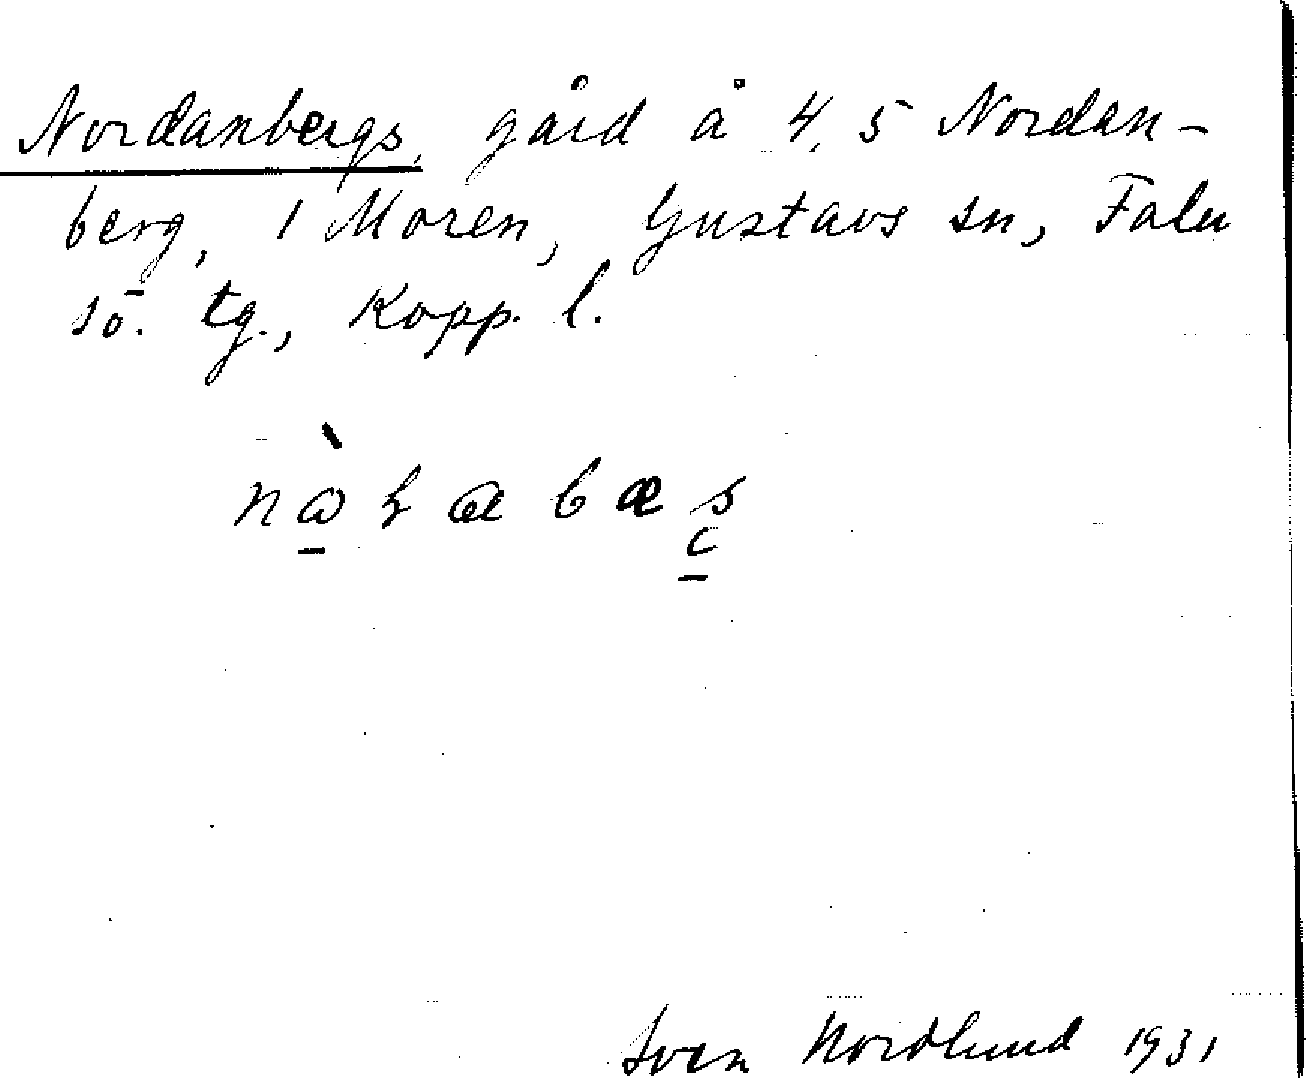 Nordanbergs, gård å 4, 5 Nordan-
berg, 1 Moren, Gustavs sn, Falu
sö. tg., Kopp. l.
Sven Nordlund 1931